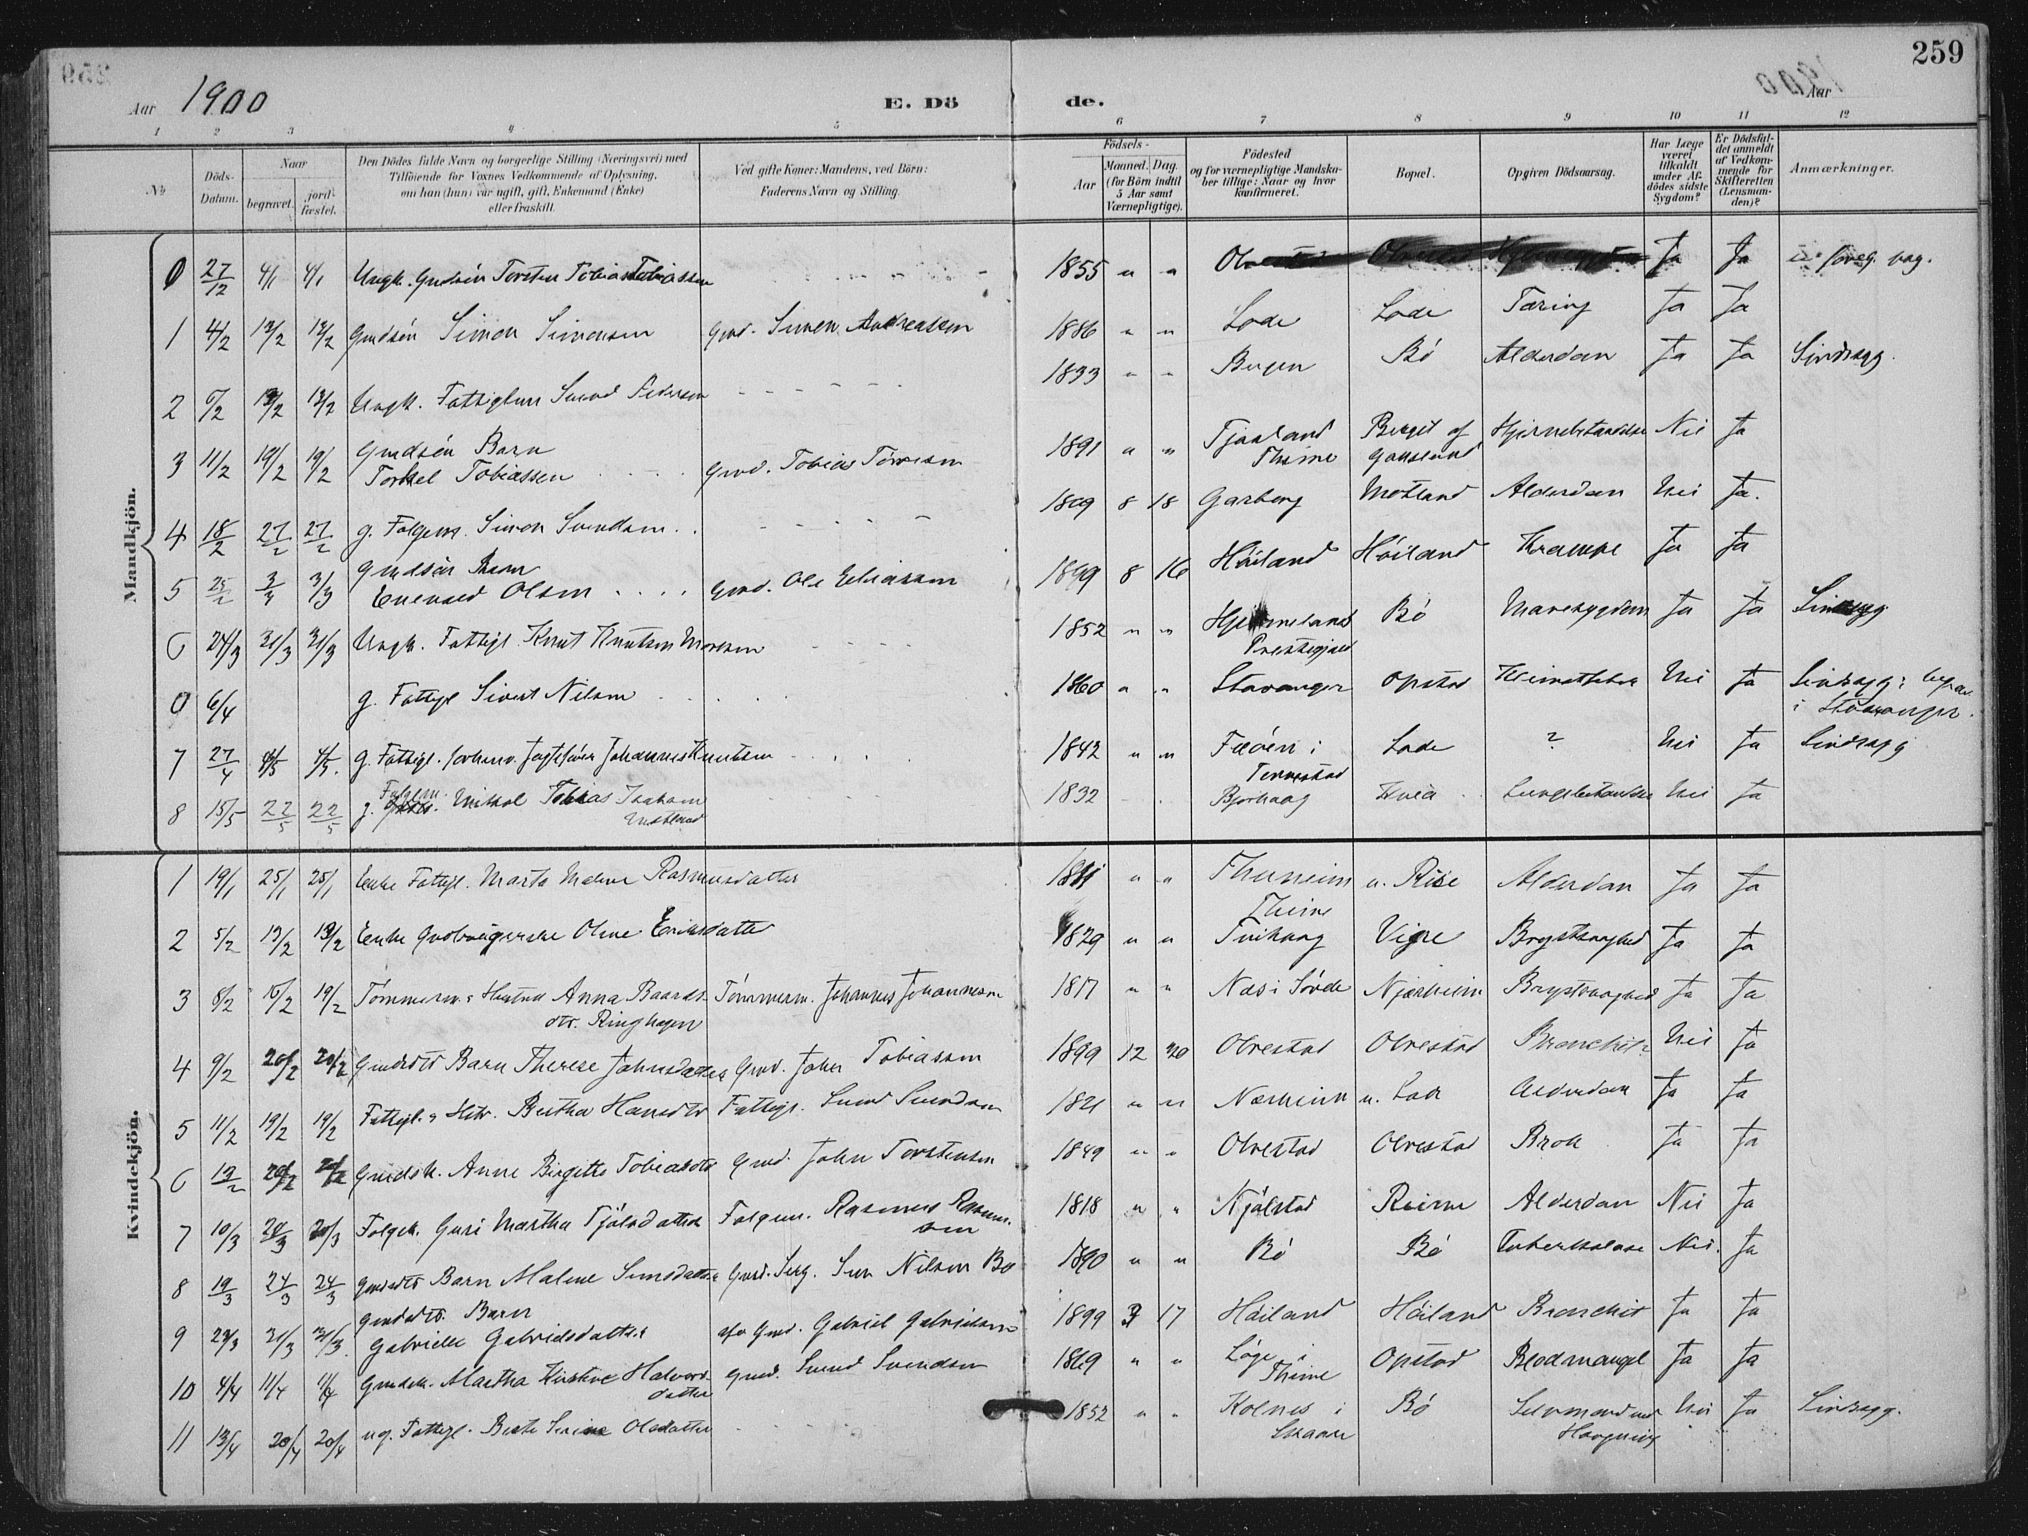 259
Aar 1900
E. Döde.
Aar 1900
1 2 3 4 5 6 7 8 9 10 11 12
No
Döds-Datum.
Naar
begravet.
jord-fæstet.
Den Dödes fulde Navn og borgerlige Stilling (Næringsvei) med
Tilföiende for Voxnes Vedkommende af Oplysning,
om han (hun) var ugift, gift, Enkemand (Enke)
eller fraskilt.
Ved gifte Koner: Mandens, ved Börn:
Faderens Navn og Stilling.
Födsels-
Aar
Maaned. Dag.
(for Börn indtil
5 Aar samt
Værnepligtige).
Födested
og for værnepligtige Mandska-
ber tillige: Naar og hvor
konfirmeret.
Bopæl.
Opgiven Dödsaarsag.
Har Læge
været
tilkaldt
under Af-
dödes sidste
Sygdom?
Er Dödsfal-
det anmeldt
af Vedkom-
mende for
Skifteretten
(Lensman-
den)?
Anmærkninger.
Mandkjön.
0 27/12 4/1 4/1 Ungk. Gmdsön Torsten Tobias Tobiassen 1855 " " Ja Ja foreg. pag.
1 4/2 13/2 13/2 Gmdsön Simon Simonsen Gmd. Simon Andreassen 1886 " " Lode Lode Tæring Ja Ja
2 5/2 13/2 13/2 Ungk. Fattiglem Svend Pedersen 1833 " " Bergen Bö Alderdom Ja Ja Sindssyg.
3 11/2 19/2 19/2 Gmdsön Barn
Torkel Tobiassen Gmd. Tobias Tönnesen 1891 " " Tjaaland
Thime Berget af
Gausland Hjernebetændelse Nei Ja
4 18/2 27/2 27/2 g. Folgem. Simon Svendsen 1809 8 18 Garborg Motland Alderdom Nei Ja.
5 3/3 3/3 Gmdsön Barn
Enevald Olsen Gmd. Ole Eliassen 1899 8 16 Höiland Höiland Krampe Ja Ja
6 24/3 31/3 31/3 Ungk. Fattigl. Knut Knutsen 1852 " " Hjelmeland
Prestegjeld Bö Mavesygdom Ja Ja Sindssyg
0 6/4 g. Fattigl Sivert Nilsen 1860 " " Stavanger Opstad Nei Ja Sindssyg; begr.
i Stavanger.
7 27/4 4/5 4/5. g. Fattigl. Johannes Knutsen 1842 " " Fæöen i
Torvestad Lode ? Nei Ja Sindssyg
8 15/5 22/5 22/5 g. Folgem. Mikkel Tobias Isaksen 1832 Bjorhaug Kvia Lungebetændelse Nei Ja
Kvindekjön.
1 19/1 25/1 25/1 Enke Fattigl. Marta Malene Rasmusdatter " " Thuneim
Thime u. Rise Alderdom Ja Ja
2 5/2 13/2 13/2 Enke Gaardbrugerske Oline Eriksdatter 1829 " " Tuihaug Vigre Brystsvaghed Ja Ja
3 8/2 15/2 19/2 Tömmerm.s Hustru Anna Baards-
dtr. Ringhagen Tömmerm. Johannes Johannesen 1817 " " Næs i Sövde Njærheim Brystsvaghed Ja Ja
4 9/2 20/2 20/2 Gmdsdtr Barn Therese Johnsdatter Gmd. John Tobiassen 1899 12 20 Obrestad Obrestad Bronchit Nei Ja
5 11/2 19/2 19/2 Fattigl.s Hstr. Bertha Hansdtr Fattigl. Svend Svendsen 1821 " " Nærheim u. Lode Alderdom Ja Ja
6 13/2 20/2 20/2 Gmdsk. Anne Birgitte Tobiasdtr Gmd. John Torstensen 1849 " " Obrestad Obrestad Brok Ja Ja
7 10/3 20/3 20/3 Folgek. Guri Martha Tjölsdatter Folgem. Rasmus Rasmus-
sen 1818 " " Njölstad Reime Alderdom Nei Ja
8 19/3 24/3 24/3 Gmdsdtr Barn Malene Simsdatter Gmd. Serg. Sven Nilsen Bö 1890 " " Bö Bö Tuberkulose Nei. Ja
9 23/3 31/3 31/3. Gmdsdtr. Barn
Gabrielle Gabrielsdatter afd Gmd. Gabriel Gabrielsen 1899 3 17 Höiland Höiland Bronchit Ja Ja
10 4/4 11/4 11/4 Gmdsk. Martha Kirstine Halvors-
datter Gmd. Svend Svendsen 1869 " " Löge i
Thime Opstad Blodmangel Ja Ja
11 13/4 20/4 20/4 ug. Fattigl. Berte Serine Olsdatter 1852 " " Kolnes i
Skaare Bö Selvmord ved
Hængning Nei Ja Sindssyg.